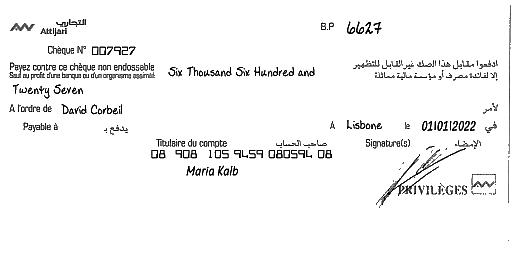 التجاري
Attijari
B.P 6627
Chèque N° 007927
Payez contre ce chèque non endossable
Sauf au profit d'une banque ou d'un organisme assimilé
Six Thousand Six Hundred and
ادفعوا مقابل هذا الصك غير القابل للتظهير
إلا لفائدة مصرف أو مؤسسة مالية مماثلة
Twenty Seven
A l'ordre de David Corbeil
لأمر
Payable à يدفع بـ
A Lisbone le 01/01/2022 في
Titulaire du compte صاحب الحساب
Signature(s) الإمضاء
08 908 105 9459 080594 08
Maria Kalb
PRIVILÈGES